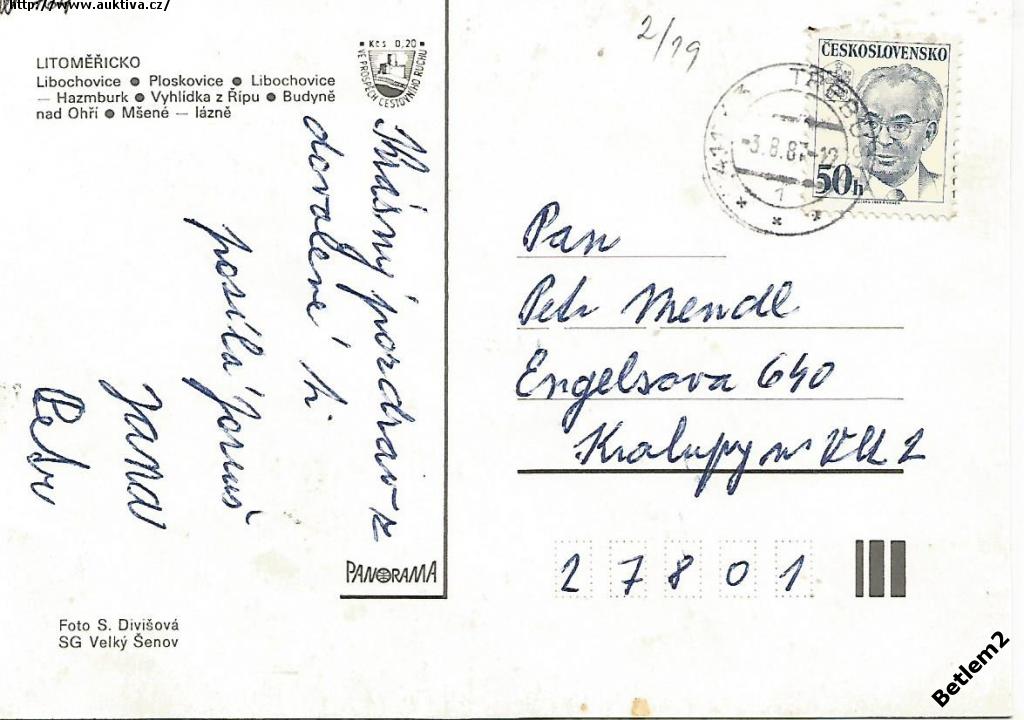 http://www.auktiva.cz/
LITOMĚŘICKO
Libochovice ● Ploskovice ● Libochovice
— Hazmburk ● Vyhlídka z Řípu ● Budyně
nad Ohří ● Mšené — lázně
Kčs 0,20
VE PROSPĚCH CESTOVNÍHO RUCHU
Krásný pozdrav z
dovolené
posílá
Jana
Petr
PANORAMA
Foto S. Divišová
SG Velký Šenov
2/19
ČESKOSLOVENSKO
50h
411
1
Pan
Petr Mendl
Engelsova 640
Kralupy n Vlt 2
27801
Betlem2